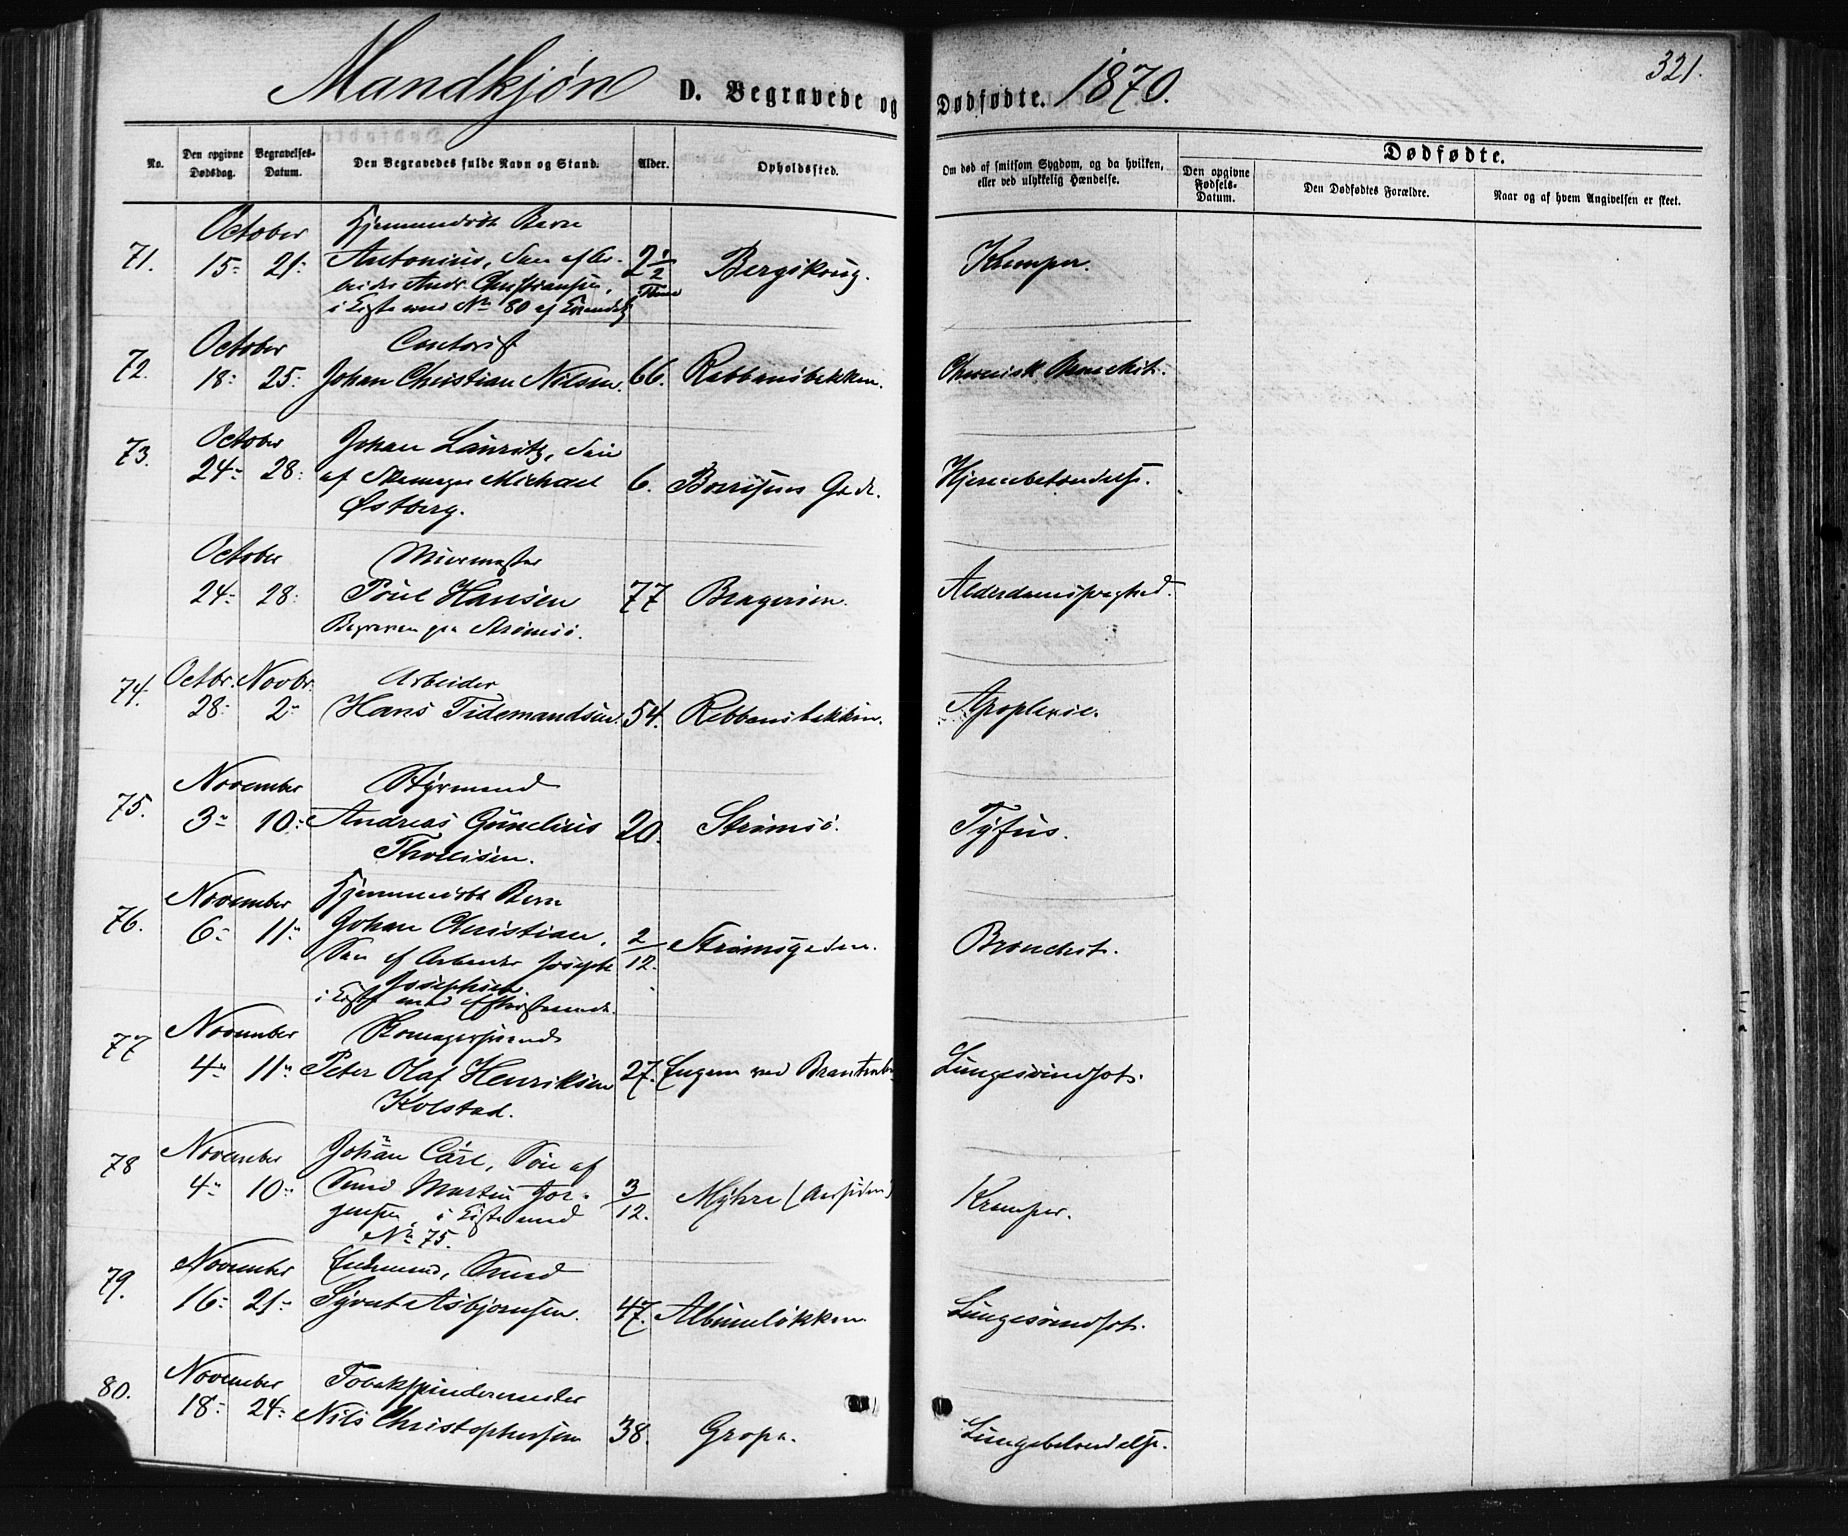 Mandkjøn D. Begravede og Dødfødte. 1870. 321.
No. Den opgivne Dødsdag. Begravelses-Datum. Den Begravedes fulde Navn og Stand. Alder. Opholdssted. Om død af smitsom Sygdom, og da hvilken, eller ved ulykkelig Hændelse. Dødfødte.
Den opgivne Fødsels-Datum. Den Dødfødtes Forældre. Naar og af hvem Angivelsen er skeet.
October Hjemmedøbt Barn
71. 15 21 Antonius, Søn af Ar- 2 1/2 Bergskoug. Kramper.
beider Andr. Christiansen, Time
i Kiste med No 80 af
October Contorist
72. 18 25 Johan Christian Nilsen. 66. Rabbensbakken. Chronisk Bronchit.
October Johan Lauritz, Søn
73. 24 28 af Skomager Michael 6. Gade. Hjernebetændelse.
Østberg.
October Muurmester
24 28 Poul Hansen 77 Bragernæs. Alderdomssvaghed.
Begraven paa Strømsø.
Octbr. Novbr. Arbeider
74. 28 2 Hans Tidemandsen 54. Rabbensbakken. Apoplexie.
November Styrmand
75. 3 10 Andreas Gunelius 20. Strømsø. Tyfus.
Thoresen.
November Hjemmedøbt Barn
76. 6 11 Johan Christian, 2/12. Strømsgaden. Bronchit.
Søn af Arbeider
Josephsen
i Kiste med
November Skomagersvend
77 4 11 Peter Olaf Henriksen 27. Engene ved Lungesvindsot.
Kolstad.
November Johan Carl, Søn af
78 4 10 Smed Martin Jør- 3/12. Myhre (Aassiden) Kramper.
gensen, i Kiste med
No 75.
November Enkemand, Smed
79. 16 21 Syvert Asbjørnsen. 47. Albumsløkken. Lungesvindsot.
November Tobakspindermester
80. 18 24 Nils Christophersen 38. Gropa. Lungebetændelse.